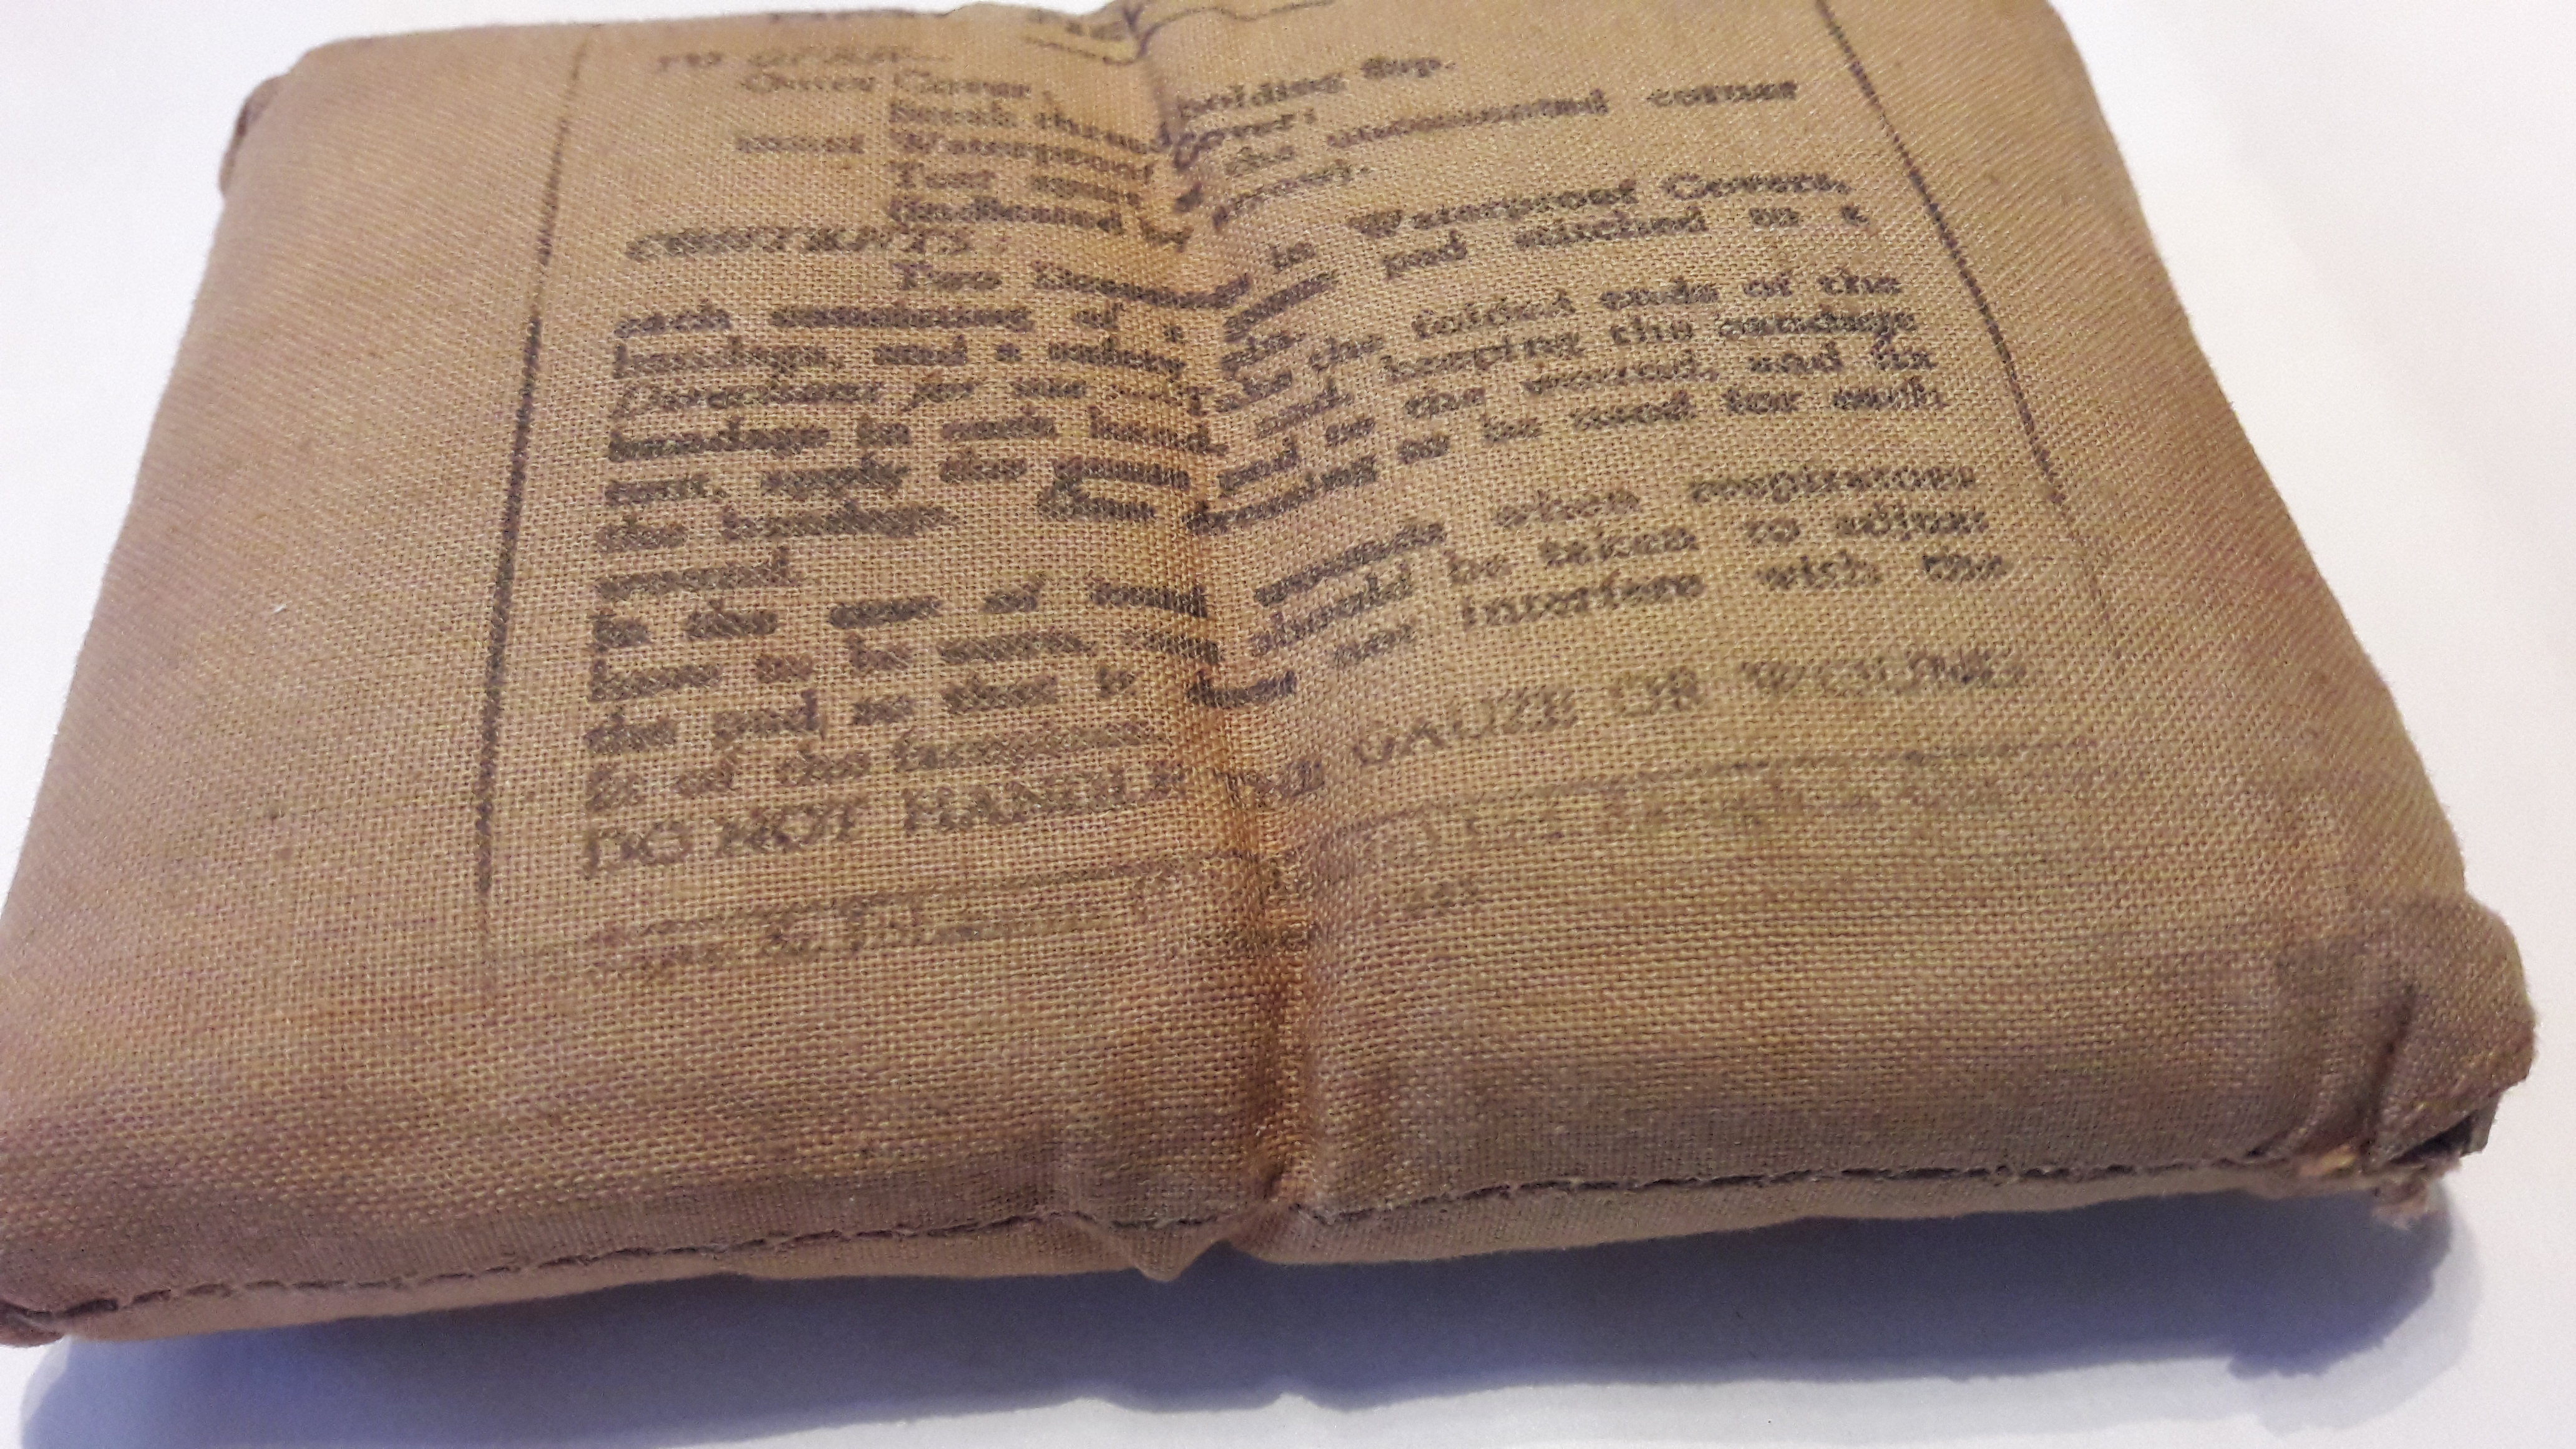 TO OPEN—
Outer Cover holding flap.
Break thread cover:
inner Waterproof the uncemented corner
Tear apart
(indicated by arrow).
CONTENTS.
Two Dressings in Waterproof Covers,
each consisting of a gauze pad stitched to a
bandage, and a safety pin.
Directions for use Take the folded ends of the
bandage in each hand, and keeping the bandage
taut, apply the gauze pad to the wound, and fix
the bandage. One dressing to be used for each
wound.
In the case of head wounds when respirators
have to be worn, should be taken to adjust
the pad, so that it does not interfere with the
fit of the facepiece.
DO NOT HANDLE THE GAUZE OR WOUND.